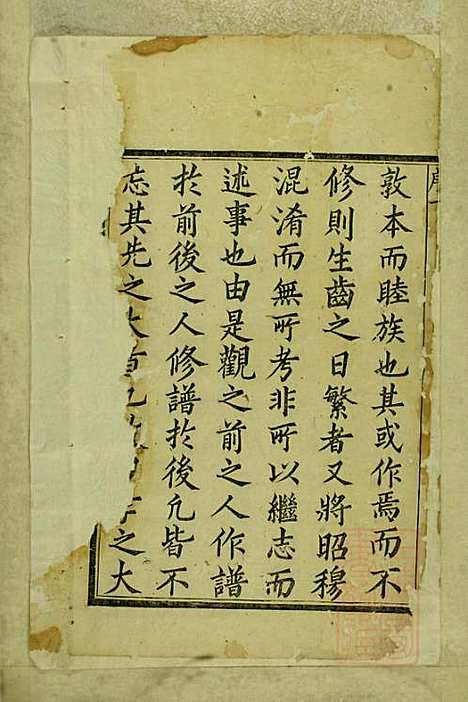 敦本而睦族也其或作焉而不
修則生齒之日繁者又將昭穆
混淆而無所考非所以繼志而
述事也由是觀之前之人作譜
於前後之人修譜於後凢皆不
忘其先之大
之大